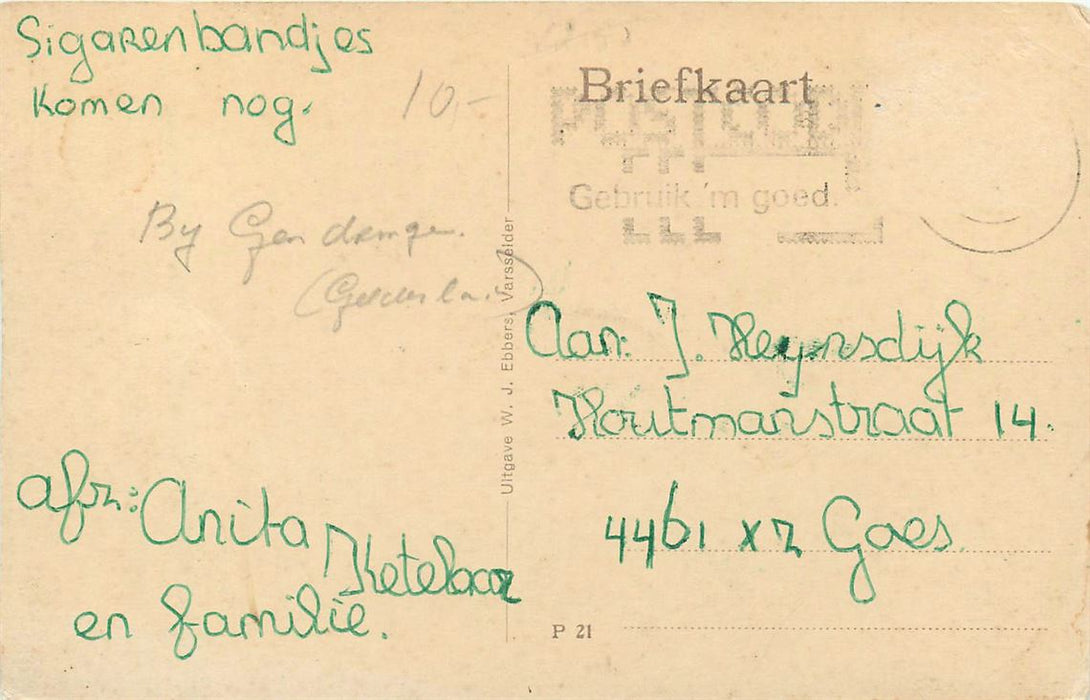 Sigarenbandjes
komen nog.
10,-
By Gendringen.
(Gelderland)
afz: Anita Ketelaar
en familie.
Uitgave W. J. Ebbers, Varsselder
Briefkaart
POSTCODE
Gebruik 'm goed.
Aan: J. Heynsdijk
Houtmanstraat 14.
4461 XZ Goes.
P 21